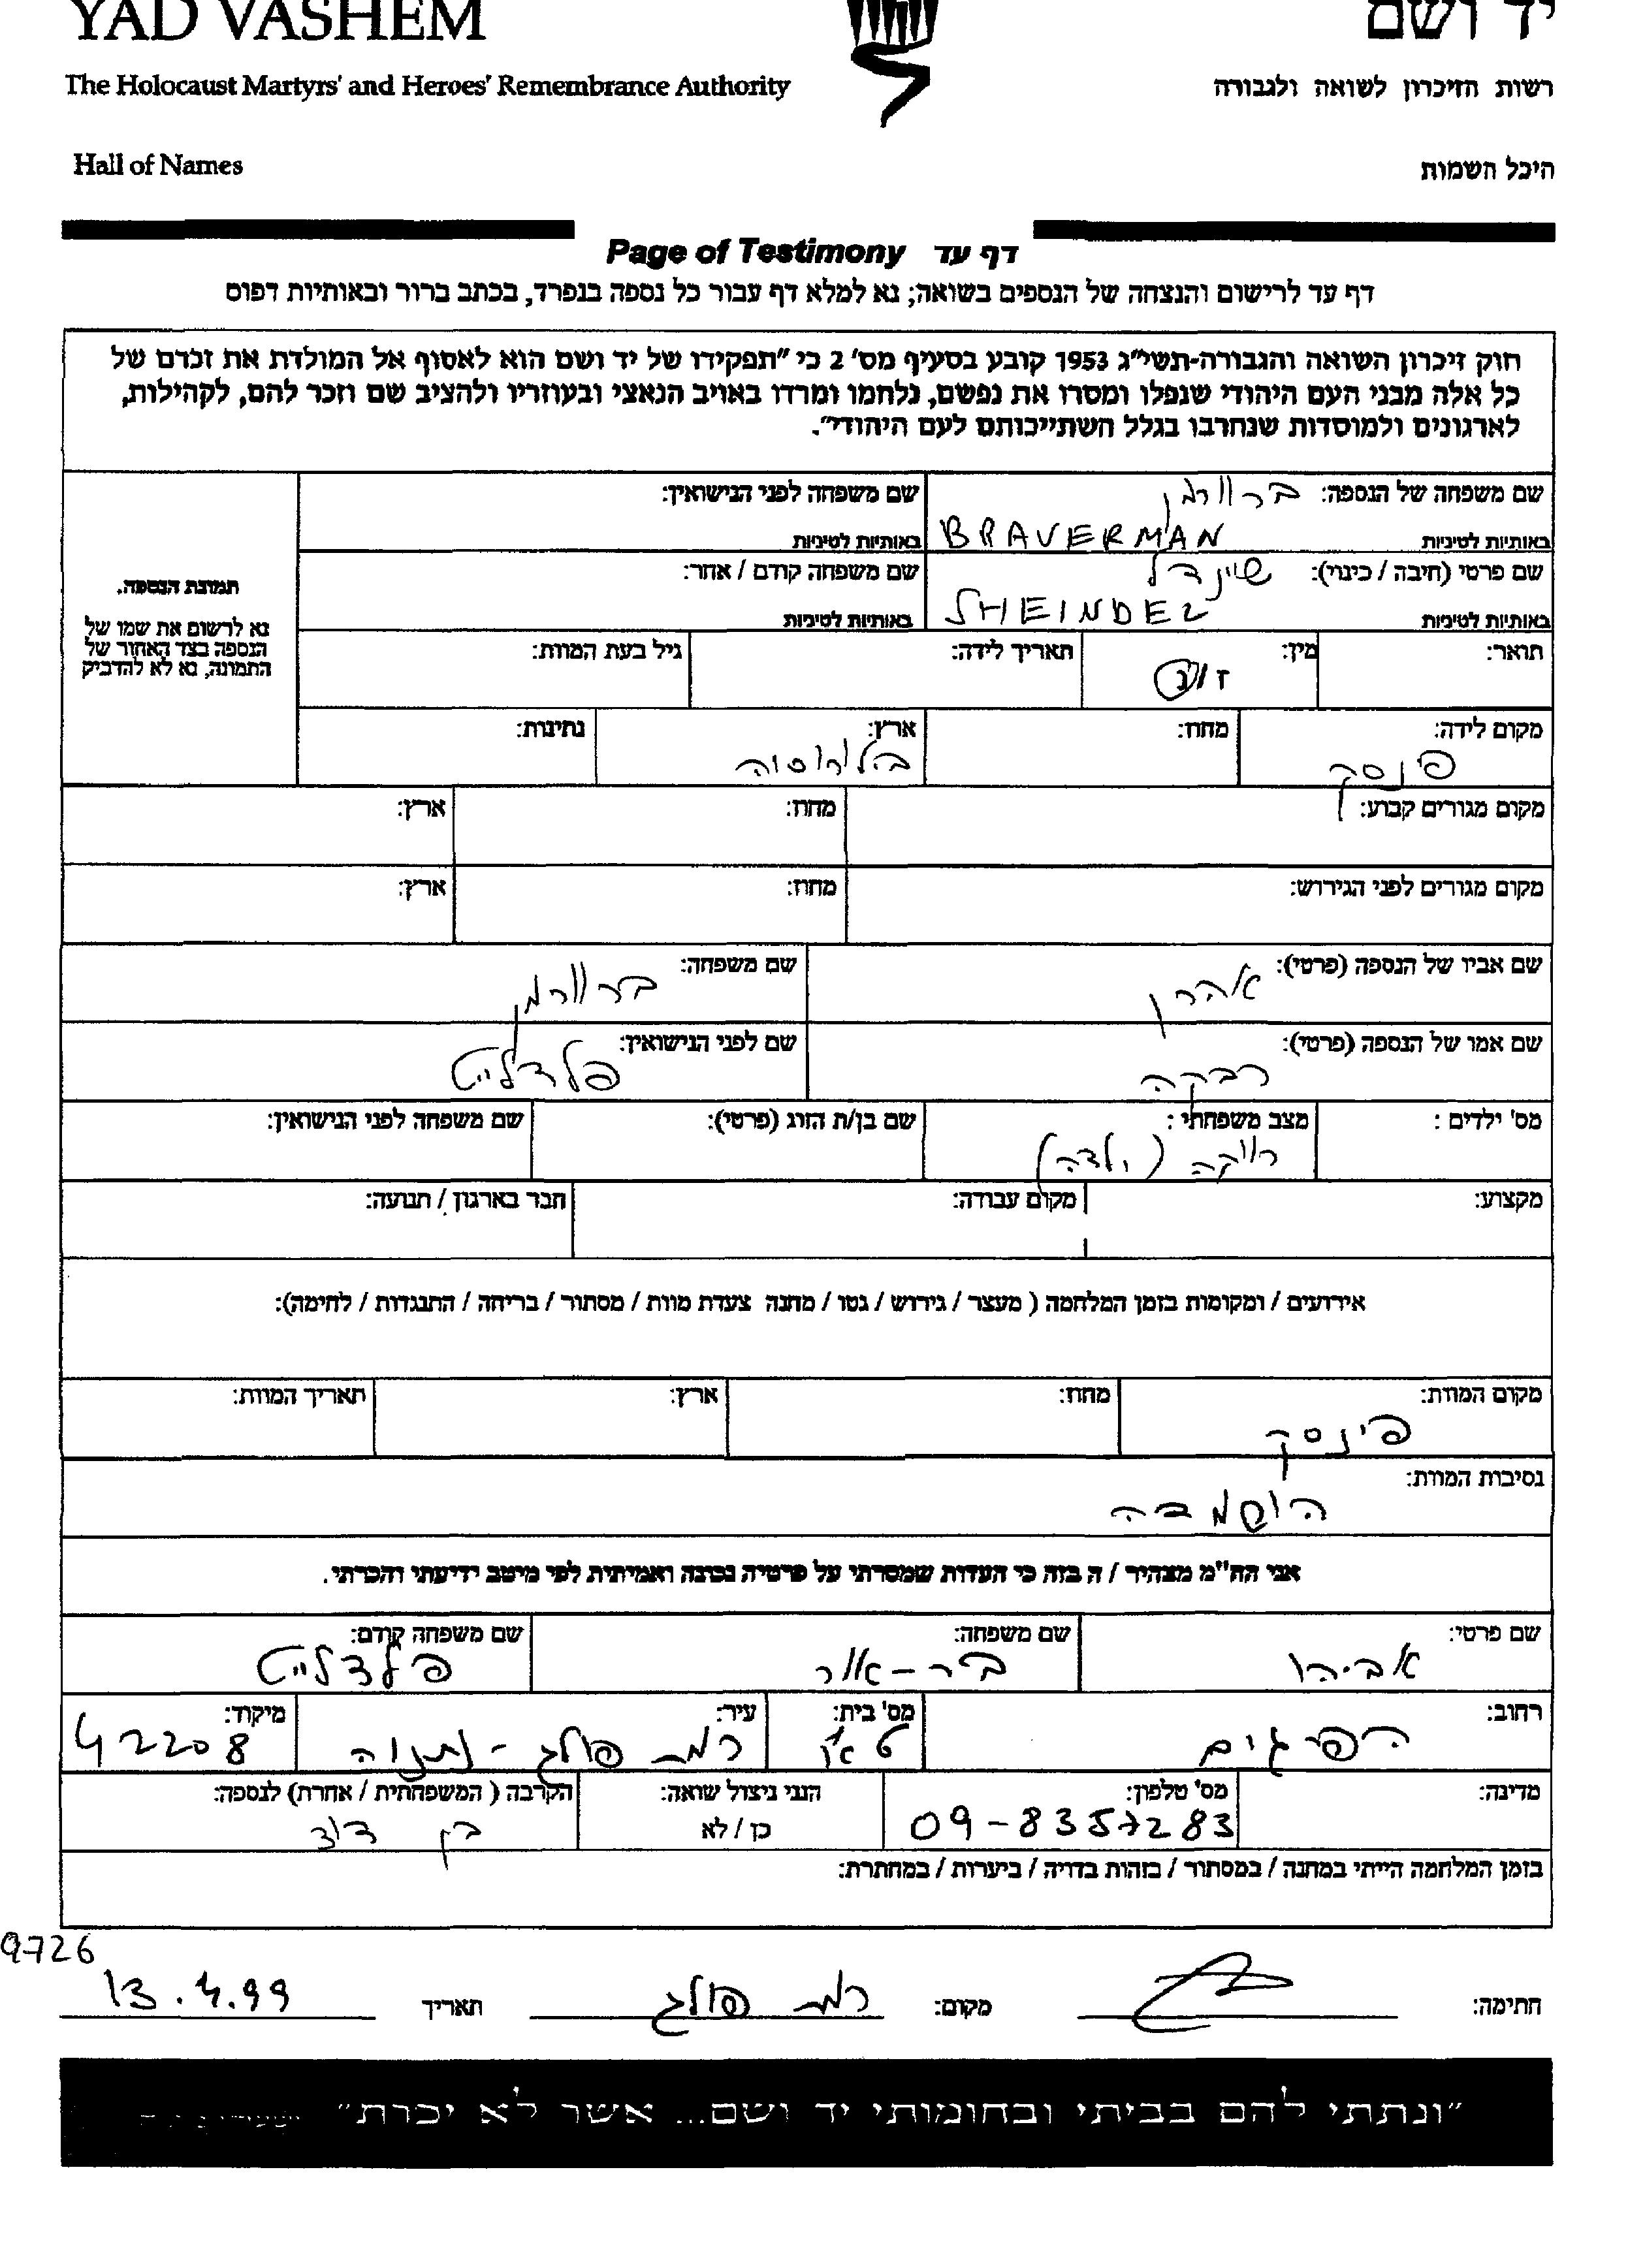 YAD VASHEM
יד ושם
The Holocaust Martyrs' and Heroes' Remembrance Authority
רשות הזיכרון לשואה ולגבורה
Hall of Names
היכל השמות
Page of Testimony דף עד
דף עד לרישום והנצחה של הנספים בשואה; נא למלא דף עבור כל נספה בנפרד, בכתב ברור ובאותיות דפוס
חוק זיכרון השואה והגבורה-תשי"ג 1953 קובע בסעיף מס' 2 כי "תפקידו של יד ושם הוא לאסוף אל המולדת את זכרם של
כל אלה מבני העם היהודי שנפלו ומסרו את נפשם, נלחמו ומרדו באויב הנאצי ובעוזריו ולהציב שם וזכר להם, לקהילות,
לארגונים ולמוסדות שנחרבו בגלל השתייכותם לעם היהודי".
שם משפחה של הנספה: ברוורמן
שם משפחה לפני הנישואין:
באותיות לטיניות BRAVERMAN
באותיות לטיניות
שם פרטי (חיבה / כינוי): שיינדל
שם משפחה קודם / אחר:
באותיות לטיניות SHEINDEL
באותיות לטיניות
תמונת הנספה.
נא לרשום את שמו של
הנספה בצד האחור של
התמונה, נא לא להדביק
תואר:
מין: ז / נ
תאריך לידה:
גיל בעת המוות:
מקום לידה: פינסק
מחוז:
ארץ: בלורוסיה
נתינות:
מקום מגורים קבוע:
מחוז:
ארץ:
מקום מגורים לפני הגירוש:
מחוז:
ארץ:
שם אביו של הנספה (פרטי): אהרן
שם משפחה: ברוורמן
שם אמו של הנספה (פרטי): רבקה
שם לפני הנישואין: פלדלייט
מס' ילדים :
מצב משפחתי : רווקה (ילדה)
שם בן/ת הזוג (פרטי):
שם משפחה לפני הנישואין:
מקצוע:
מקום עבודה:
חבר בארגון / תנועה:
אירועים / ומקומות בזמן המלחמה ( מעצר / גירוש / גטו / מחנה צעדת מוות / מסתור / בריחה / התנגדות / לחימה):
מקום המוות: פינסק
מחוז:
ארץ:
תאריך המוות:
נסיבות המוות:
הושמדה
אני הח"מ מצהיר / ה בזה כי העדות שמסרתי על פרטיה נכונה ואמיתית לפי מיטב ידיעתי והכרתי.
שם פרטי: אביהו
שם משפחה: בר-אור
שם משפחה קודם: פלדלייט
רחוב: הפרגים
מס' בית:
עיר: רמת פולג - נתניה
מיקוד: 42208
מדינה:
מס' טלפון: 09-8357283
הנני ניצול שואה: כן / לא
הקרבה ( המשפחתית / אחרת) לנספה: בן דוד
בזמן המלחמה הייתי במחנה / במסתור / בזהות בדויה / ביערות / במחתרת:
9726
חתימה:
מקום: רמת פולג
תאריך 13.4.99
"ונתתי להם בביתי ובחומותי יד ושם... אשר לא יכרת"